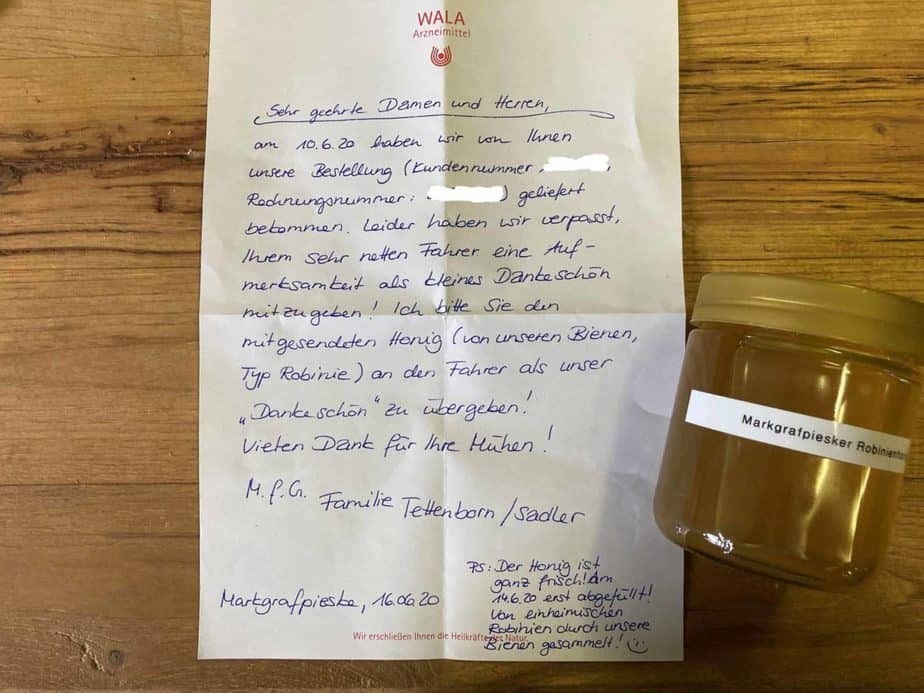 WALA
Arzneimittel
Sehr geehrte Damen und Herren,
am 10.6.20 haben wir von Ihnen
unsere Bestellung (Kundennummer
Rechnungsnummer: ) geliefert
bekommen. Leider haben wir verpasst,
Ihrem sehr netten Fahrer eine Auf-
merksamkeit als kleines Dankeschön
mitzugeben! Ich bitte Sie den
mitgesendeten Honig (von unseren Bienen,
Typ Robinie) an den Fahrer als unser
„Dankeschön“ zu übergeben!
Vielen Dank für Ihre Mühen!
M.f.G. Familie Tettenborn/Sadler
Markgrafpieske, 16.06.20
PS: Der Honig ist
ganz frisch! Am
14.6.20 erst abgefüllt!
Von einheimischen
Robinien durch unsere
Bienen gesammelt! :)
Wir erschließen Ihnen die Heilkräfte der Natur.
Markgrafpiesker Robinienhon